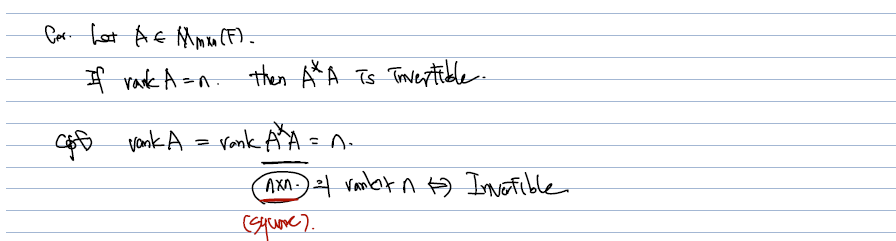 Cor. Let A ∈ Mmxn(F).
If rank A = n. then A*A is invertible.
pf) rank A = rank A*A = n.
nxn. 의 rank가 n ⇔ Invertible
(square).